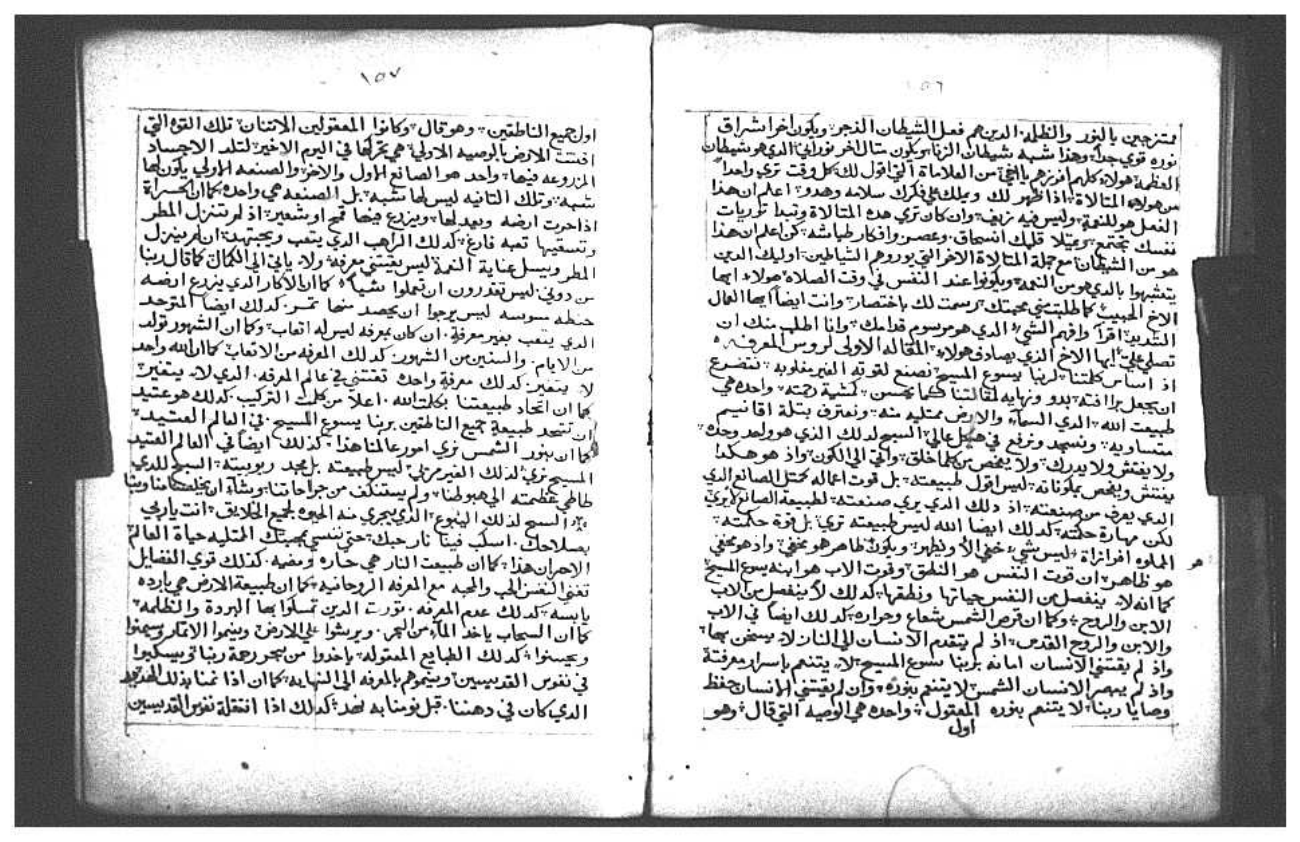 ١٥٦
ممتزجين بالنور والظلمه. الدين هم فعل الشيطان الفجر. ويكون اخر اشراق
نوره قوي جدا. وهذا شبه شيطان الزنا. ويكون مثال اخر نوراني الدي هو شيطان
العظمه. هولاء كلهم افرزهم من العلامات التي اقول لك. كل وقت تري واحدا
من هولاء المتالاة. اذا ظهر لك ويملك علي فكرك سلامه وهدو. اعلم ان هدا
الفعل هو للنعمة وليس فيه زيف. وان كان تري هده المتالاة وتبدا
نفسك تجتمع. ويمتلا قلبك انسحاق وافكار طياشه. كن اعلم ان هدا
هو من الشيطان مع جملة المتالاة الاخر التي يوروهم الشياطين. اوليك الدين
يتشبهوا بالدي هو من النعمه. ويكونوا عند النفس في وقت الصلاه. هولاء ايها
الاخ الحبيب كما طلبت مني محبتك رسمت لك باختصار. وانت ايضا ايها العال
التدين اقرا وافهم الشيء الدي هو مرسوم قدامك. وانا اطلب منك ان
تصلي علي ايها الاخ الذي يصادف هولاء. المقاله الاولى لروس المعرفه
اذ اساس كلمتنا لربنا يسوع المسيح نصنع لقوته الغير مغلوبه. نتضرع
ان يجعل برافته بدو ونهايه لمقالتنا كما يحسن. كمشية رحمته. واحده هي
طبيعت الله. الدي السماء والارض ممتليه منه. ونعترف بتلة اقانيم
متساويه. ونسجد ونرفع في هيكل عالي. السبح لدلك الذي هو واحد وحده
ولا يفتش ولا يدرك. ولا يفحص من كلما خلق. واتي الي الكون. واذ هو هكدا
يفتش ويفحص بمكوناته. ليس اقول طبيعته. بل قوت اعماله كمتل الصانع الدي
الدي يعرف من صنعته. اذ دلك الدي يري صنعته. لطبيعة الصانع لا يري
لكن مهارة حكمته. كدلك ايضا الله ليس طبيعته تري. بل قوة حكمته
المملوه افرازاة. ليس شيء خفي الا ويظهر. ويكون ظاهر هو مخفي. واذ هو مخفي
هو ظاهر. ان قوت النفس هو النطق. وقوت الاب هو ابنه يسوع المسيح
كما انه لا ينفصل من النفس حياتها ونطقها. كدلك لا ينفصل من الاب
الابن والروح. وكما ان قرص الشمس شعاع وحراره. كدلك ايضا في الاب
والابن والروح القدس. اذ لم يتقدم الانسان الي النار لا يسخن بها
واذ لم يقتني الانسان امانه بربنا يسوع المسيح. لا يتنعم باسرار معرفته
واذ لم يبصر الانسان الشمس لا يتنعم بنوره. وان لم يقتني الانسان حفظ
وصايا ربنا. لا يتنعم بنوره المعقول. واحده هي الوصيه التي قال. وهو
اول
١٥٧
اول جميع الناطقين. وهو قال. وكانوا المعقولين الاتنان. تلك القوه التي
اقتنت الارض بالوصيه الاولي. هي تحركها في اليوم الاخير. لتلد الاجساد
المزروعه فيها. واحد هو الصانع الاول والاخر. والصنعه الاولي يكون لها
شبه. وتلك التانيه ليس لها شبه. بل الصنعه هي واحده. كما ان الحراث
اذا حرت ارضه وبعدلها. ويزرع فيها قمح او شعير. اذ لم تنزل المطر
وتسقيها تعبه فارغ. كدلك الراهب الدي يتعب ويجتهد. ان لم ينزل
المطر ويسل عناية النعمة ليس يقتني معرفه. ولا ياتي الي الكمال. كما قال ربنا
من دوني ليس تقدرون ان تعملوا شيا. كما ان الاكار الدي يزرع ارضه
حنطه مسوسه ليس يرجوا ان يحصد منها تمر. كدلك ايضا المتوحد
الدي يتعب بغير معرفة. ان كان بمعرفه ليس له اتعاب. وكما ان الشهور تولد
من الايام. والسنين من الشهور. كدلك المعرفه من الاتعاب. كما ان الله واحد
لا يتغير. كدلك معرفة واحده تقتني في عالم المعرفه. الدي لا يتغير
كما ان اتحاد طبيعتنا بكلمت الله. اعلا من كلمت التركيب. كدلك هو عتيد
ان تتحد طبيعة جميع الناطقين بربنا يسوع المسيح. في العالم العتيد
كما ان بنور الشمس نري امور عالمنا هذا. كدلك ايضا في العالم العتيد
المسيح نري لدلك الغير مرئي. ليس طبيعته بل مجد ربوبيته. السبح للدي
طاطي عظمته الي هبوطنا. ولم يستنكف من جراحاتنا. وشاء ان يخلصنا
السبح لذلك الينبوع. الذي يجري منه الحيوه لجميع الخلايق. انت يا ربي
بصلاحك. اسكب فينا نار حبك. حتي ننسي بمحبتك الممتليه حياة العالم
الاحزان هذا. كما ان طبيعت النار هي حاره ومضيه. كذلك قوي الفضايل
تقني لنفس الحب والمحبه مع المعرفه الروحانيه. كما ان طبيعة الارض هي بارده
يابسه. كدلك عدم المعرفه. تورت الدين تمسكوا بها البردة والظلمه
كما ان السحاب ياخد الماء من البحر. ويرشوا علي الارض. وينموا الاتمار ويسمنوا
ويحسنوا. كدلك الطبايع المعقوله. ياخدوا من بحر رحمة ربنا. ويسكبوا
في نفوس القديسين. وينموهم بالمعرفه الي النهايه. كما ان اذا نمنا بذلك
الدي كان في دهننا. قبل نومنا به نجد. كدلك اذا انتقلة نفوس القديسين